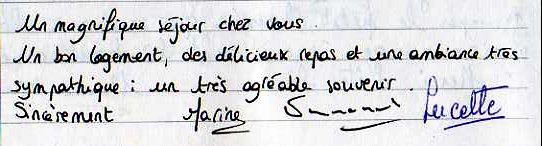 Un magnifique séjour chez vous.
Un bon logement, des délicieux repas et une ambiance très
sympathique : un très agréable souvenir.
Sincèrement Marine Lucette